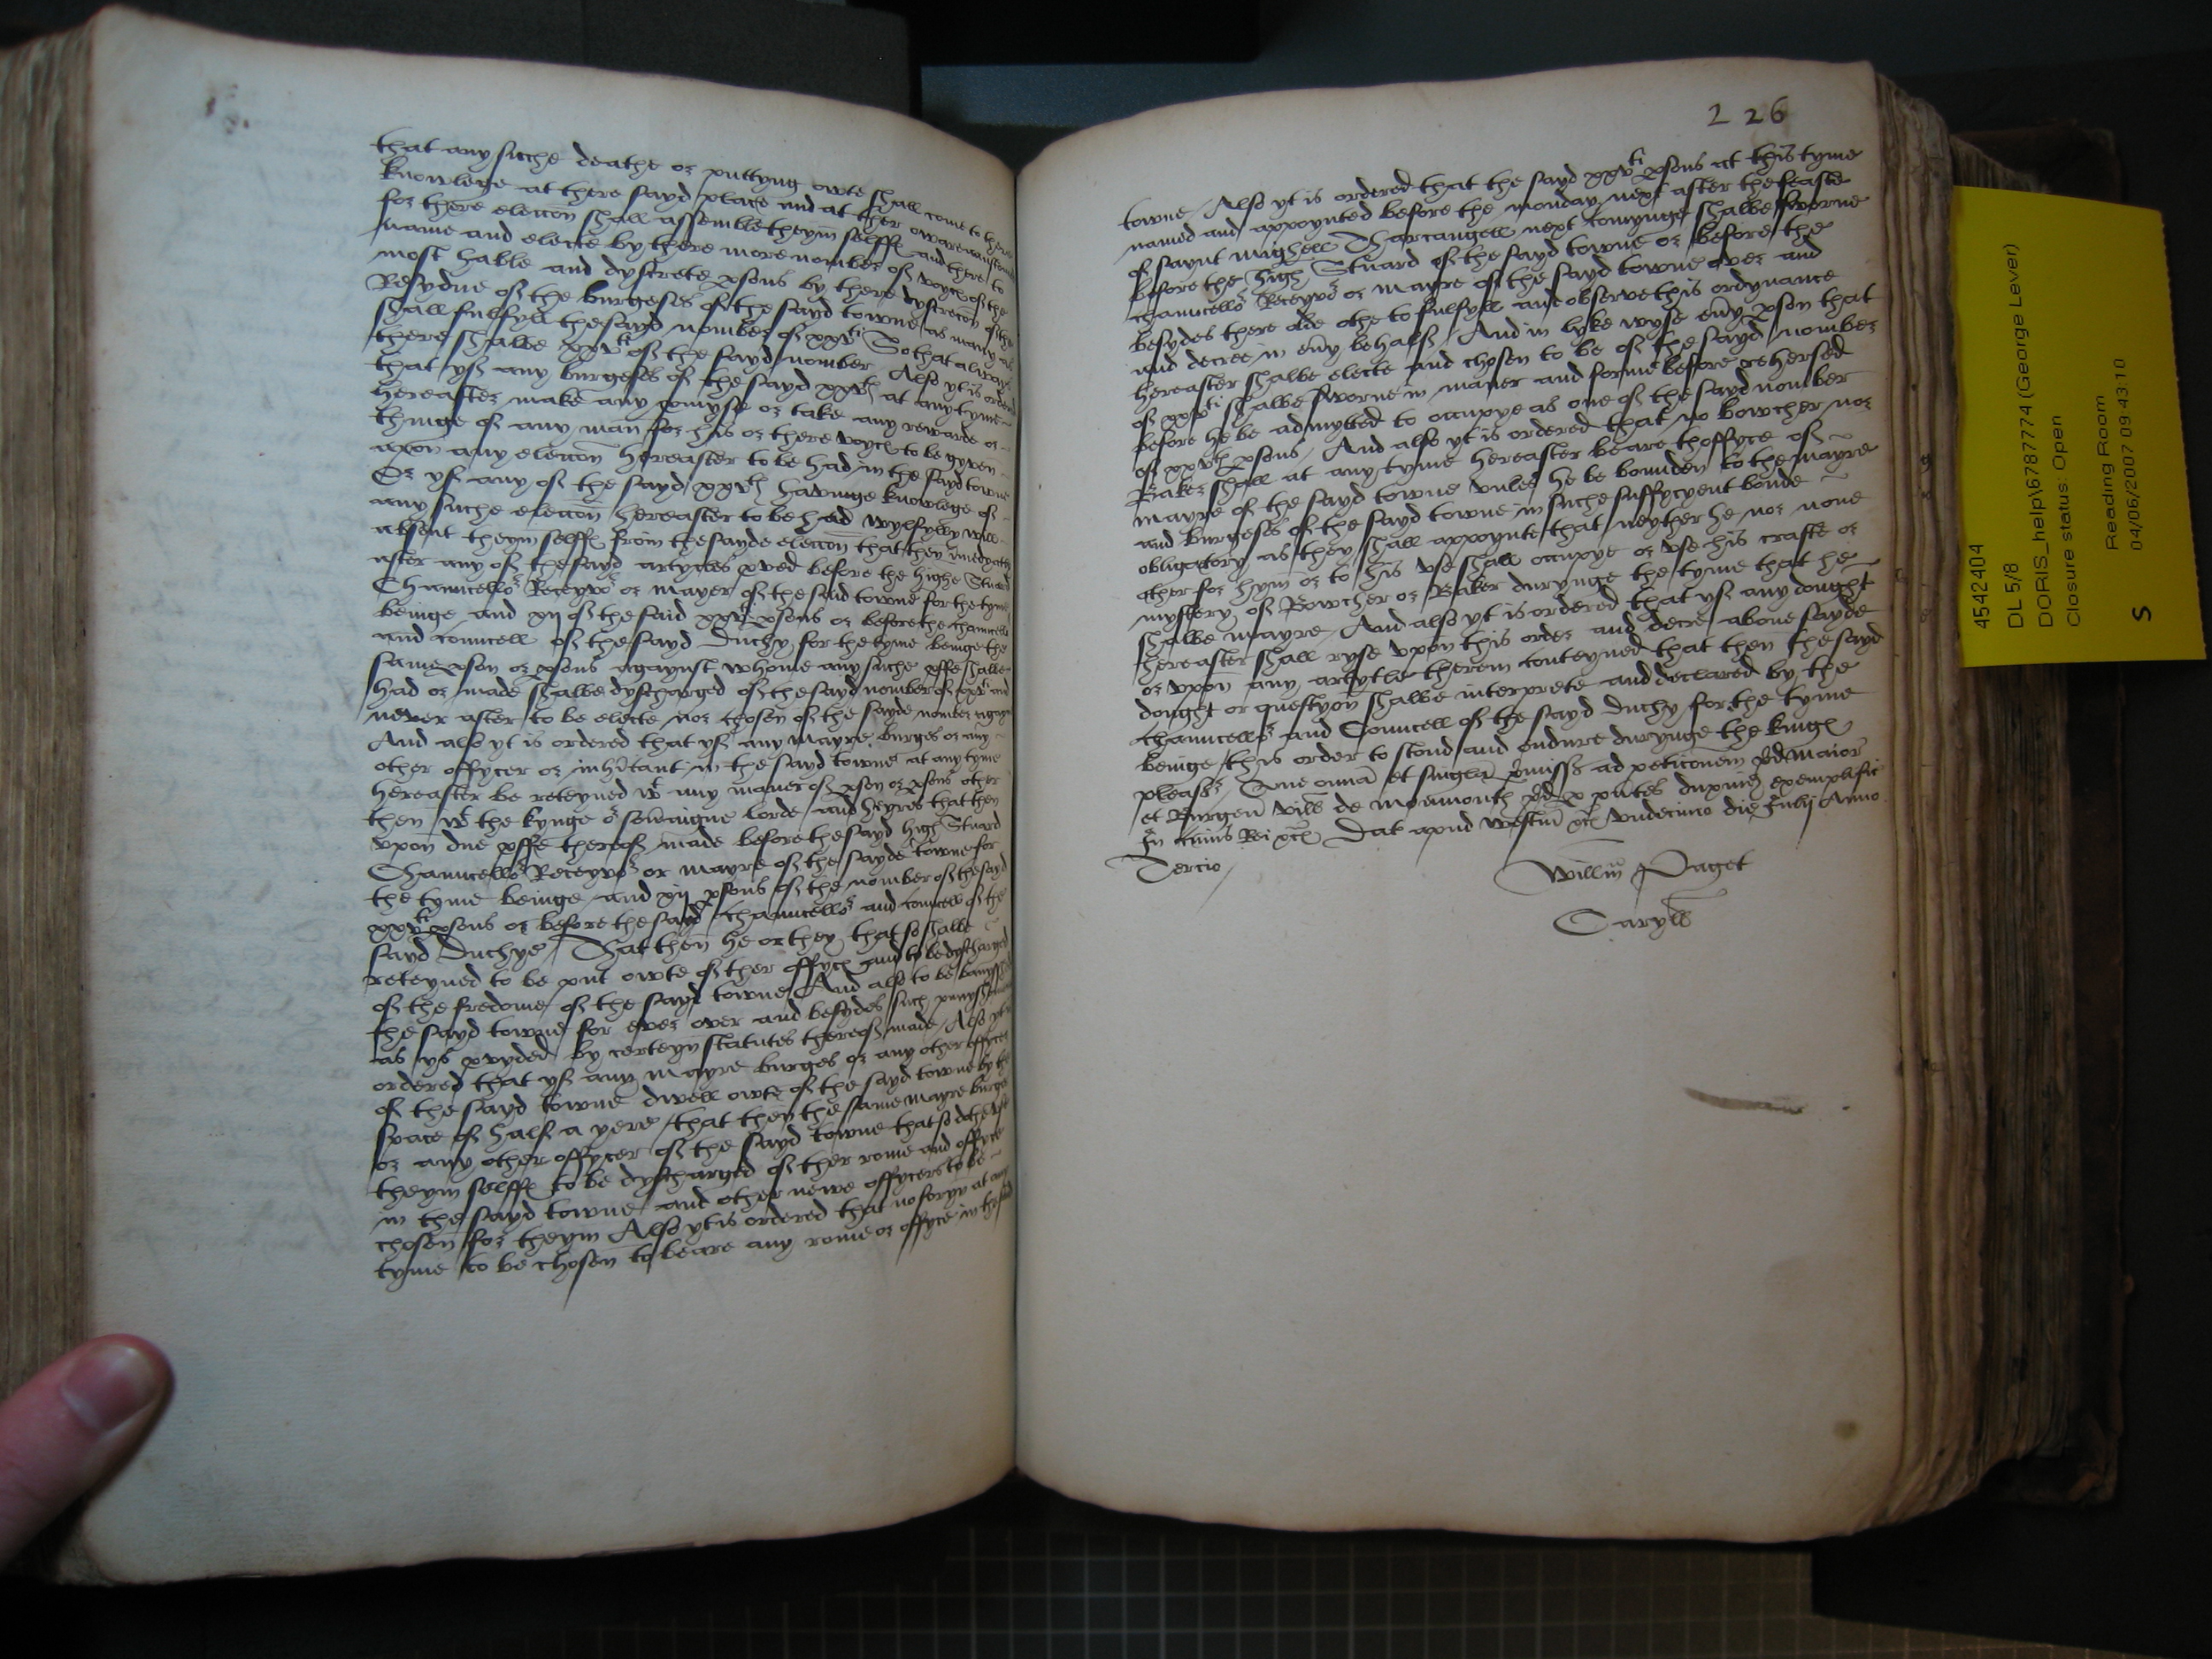 that any suche deathe or puttyng owte shall come to there
knowlege at there sayd place and at ther owne
for there eleccon shall assemble theym selffe and there to
name and electe by there more nomber of voyce of the
most hable and dyscrete psons by there dyscrecon of the
Resydue of the burgeses of the sayd towne as many as
shall fulfyll the sayd nomber of xxvti So that alwaye
there shalbe xxvti of the sayd nomber Also yt is orderd
that yf any burgeses of the sayd xxvth at any tyme
hereafter make any pmyse or take any rewarde or
thinge of any man for his or there voyce to be gyven
apon any eleccon hereafter to be had in the sayd towne
Or yf any of the sayd xxvth havinge knowlege of
any suche eleccon hereafter to be had wylfylly will
absent theym selffe from the sayde eleccon that they imedyatly
after any of the sayd artycles pved before the highe Stuard
Chauncellor Receyvor or mayer of the said towne for the tyme
beinge and xij of the said xxvti psons or before the chauncellor
and councell of the sayd Duchy for the tyme beinge the
same pson or psons agaynst whome any suche pffe shalbe
had or made shalbe dyscharged of the sayd nomber of xxvti and
never after to be electe nor chosen of the sayde nomber agayn
And also yt is ordered that yf any mayre burges or any
other offycer or inhitant in the sayd towne at any tyme
hereafter be reteyned wt any maner of pson or psons other
then wt the kynge or sovaigne lorde and heyres that then
upon due pffe thereof made before the sayd high Stuard
Chauncellor Receyvor or mayre of the sayde towne for
the tyme beinge and xij psons of the nomber of the sayd
xxvti psons or before the sayd chauncellor and councell of the
sayd Duchye That then he or they that so shalbe
reteyned to be put owte of ther offyce and to be dyscharged
of the fredome of the sayd towne And also to be banysshed
the sayd towne for ever over and besydes such punyshment
as ys pvyded by certeyn statutes thereof made Also yt is
ordered that yf any mayre burges or any other offycer
of the sayd towne dwell owte of the sayd towne by the
space of half a yere that then the same mayre burges
or any other offycer of the sayd towne that so dothe
theym selffe to be dyscharged of ther rome and offyce
in the sayd towne and other newe offycers to be
chosen for theym Also yt is ordered that no foryn at any
tyme to be chosen to beare any rome or offyce in the said
226
towne Also yt is ordered that the sayd xxvti psons at this tyme
named and appoynted before the monday next after the feaste
of saynt mighell Tharcangell next comynge shalbe sworne
before the high Stuard of the sayd towne or before the
chauncellor Receyvor or mayre of the sayd towne over and
besydes there olde othe to fulfyll and observe this ordynance
and decree in evy behalf And in lyke wyse evy pson that
hereafter shalbe electe and chosen to be of the sayd nomber
of xxvti shalbe sworne in maner and forme before rehersed
before he be admytted to occupye as one of the sayd nomber
of xxvth psons And also yt is ordered that no bowcher nor
Baker shall at any tyme hereafter beare thoffyce of
mayre of the sayd towne unles he be bounden to the mayre
and burgeses of the sayd towne in suche suffycyent bonde
obligatory as they shall appoynte that neyther he nor none
other for hym or to his use shall occupye or use his crafte or
mystery of Bowcher or Baker durynge the tyme that he
shalbe mayre And also yt is ordered that yf any dought
hereafter shall ryse upon this order and decre above sayde
or uppon any artycle therein conteyned that then the sayd
dought or questyon shalbe interprete and declared by the
chauncellor and Councell of the sayd Duchy for the tyme
beinge this order to stond and endure durynge the kinge
pleasr Que omia et singula pmissa ad peticonem pd maior
et Burgen ville de monmouth pd p pntes duximus exemplific
In cuius Rei &c Dat apud westm &c undecimo die Julij Anno
Tercio
Willm Paget
Caryll
4542404
DL 5/8
DORIS_help\6787774 (George Lever)
Closure status: Open
Reading Room
04/06/2007 09:43:10
S